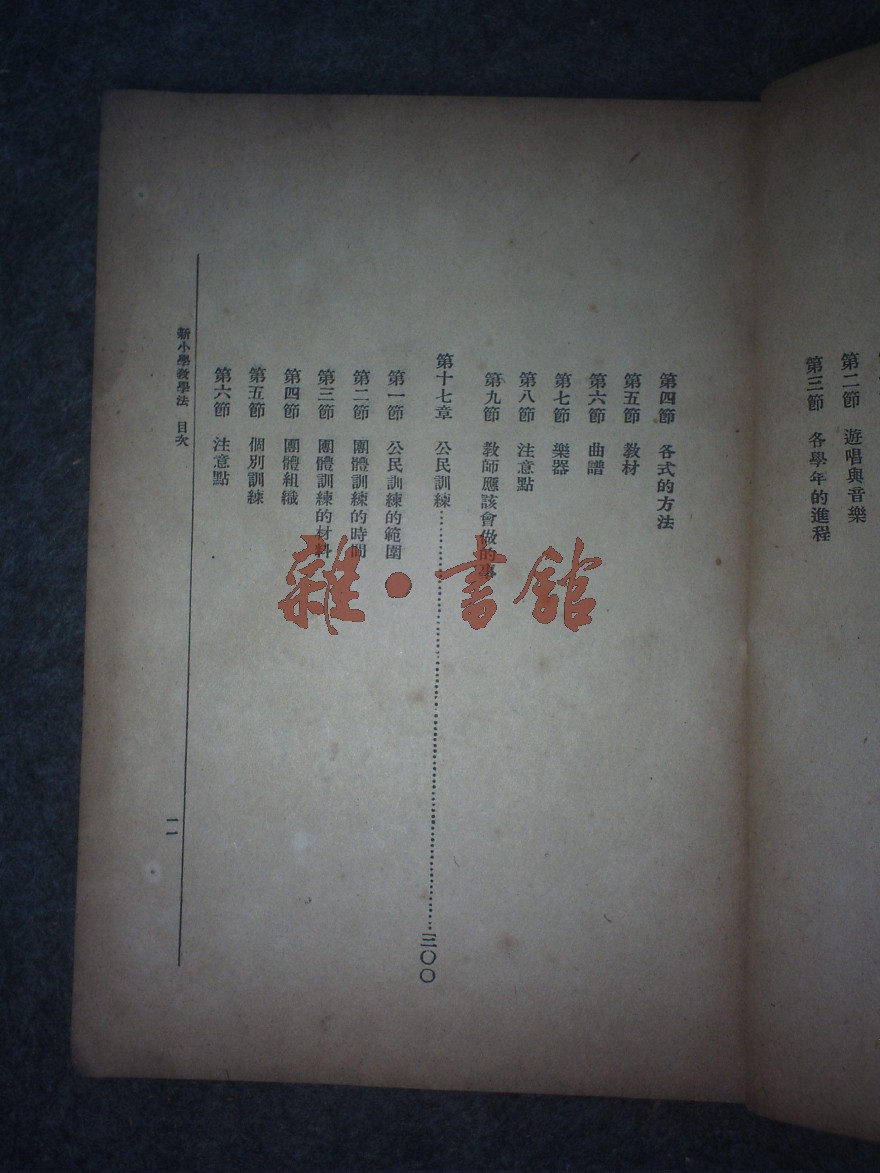 第二節　遊唱與音樂
第三節　各學年的進程
第四節　各式的方法
第五節　教材
第六節　曲譜
第七節　樂器
第八節　注意點
第九節　教師應該會做的事
第十七章　公民訓練……三〇〇
第一節　公民訓練的範圍
第二節　團體訓練的時間
第三節　團體訓練的材料
第四節　團體組織
第五節　個別訓練
第六節　注意點
新小學教學法　目次
一一
雜·書館